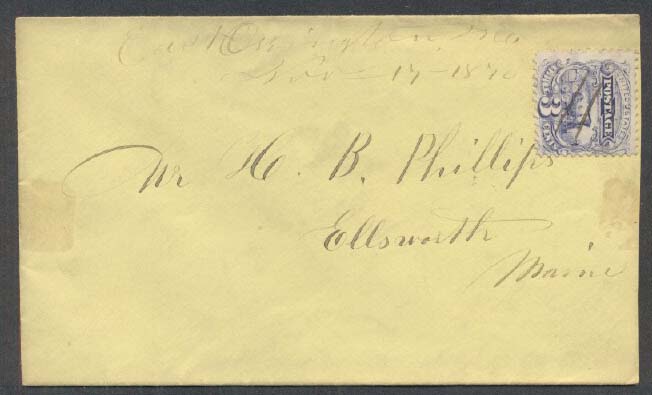 East Orrington Me
Nov 17 1870
UNITED STATES
POSTAGE
3
Mr H. B. Phillips
Ellsworth
Maine